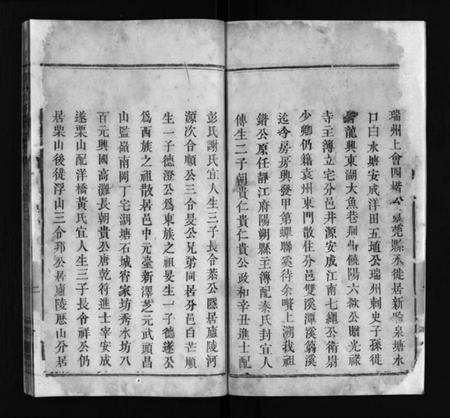 瑞州上會四塔公 莞縣丞徙居新喻泉塘水
口白水塘安成洋田五道公瑞州刺史子孫徙
龍興東湖大魚巷 儀陽六 公贈光祿
寺主簿立宅分邑井源安成江南七繩公衛尉
少卿仍籍袁州東門散住分邑雙溪潭溪翁溪
迄今房房興發甲第蟬聯奚待余贅上溯我祖
鏘公原任靜江府陽朔縣主簿配秦氏封宜人
傳生二子朝貴仁貴仁貴公政和辛丑進士配
彭氏謝氏宜人生三子長令茶公隱居廬陵河
源次令順公三令晏公兄弟同居分邑白芒順
生一子德澄公為東族之祖晏生一子德遂公
為西族之祖散居邑中元臺新澤芝元武頭昌
山監嶺南岡丁宅湖塘石城宵家坊秀水坊八
百元興國高灘長朝貴公唐乾符進士宰安成
遂栗山配洋橋黃氏宜人生三子長令祥公仍
居栗山後徙浮山三令邦公居廬陵歷山分居